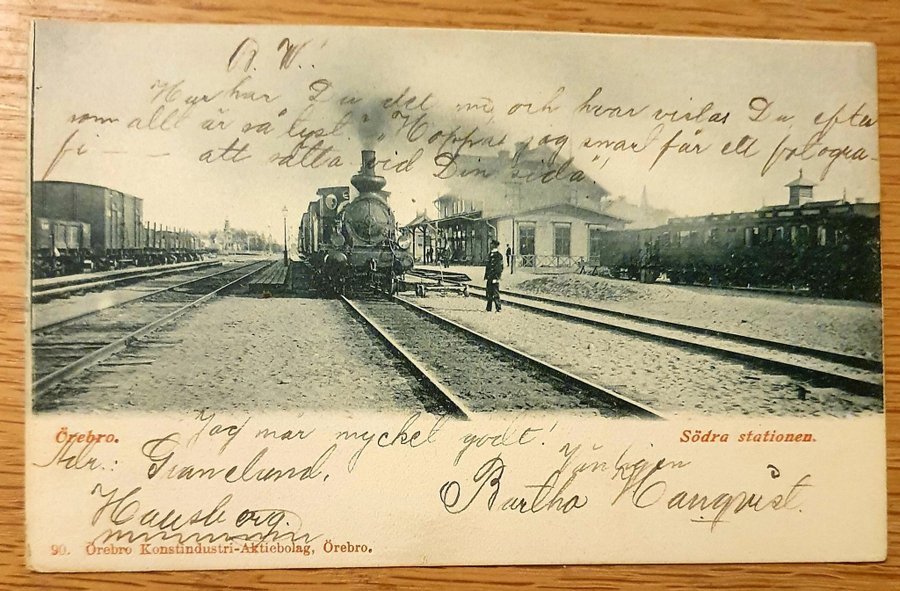 B. W.!
Hur har Du det nu och hvar vistas Du, efter
som allt är så tyst. Hoppas jag snart får ett fotogra-
fi — — att sätta vid Din sida,
Örebro.
Södra stationen.
Jag mår mycket godt!
Adr.: Granelund,
Vänligen
Hausberg.
Bertha Hanqvist.
90. Örebro Konstindustri-Aktiebolag, Örebro.